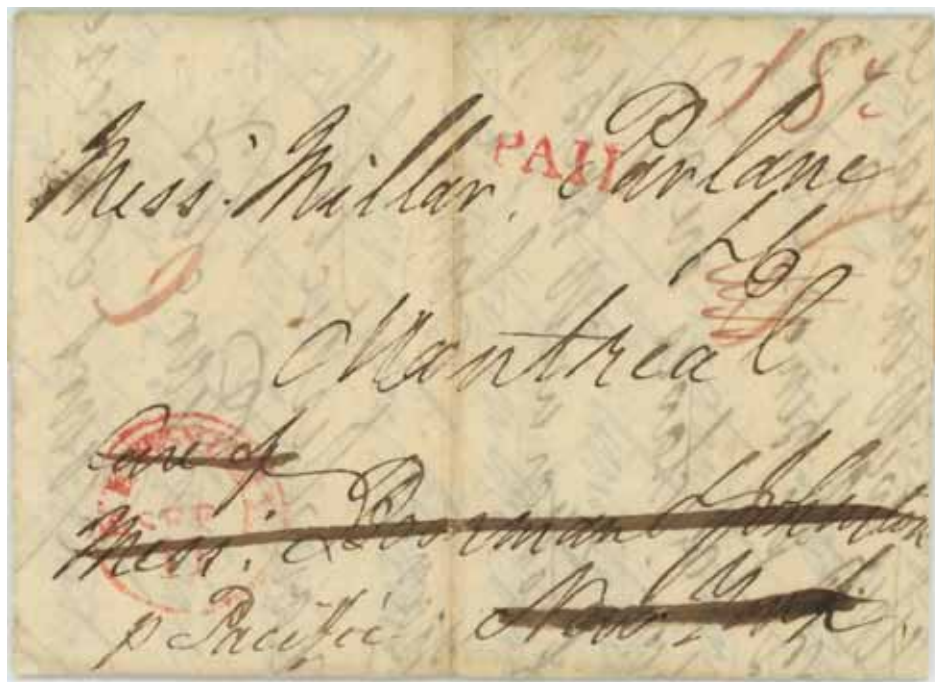 18¾
PAID
Mess. Millar, Parlane
& Co
Montreal
Care of
Mess. Boorman & Johnston
New York
p Pacific